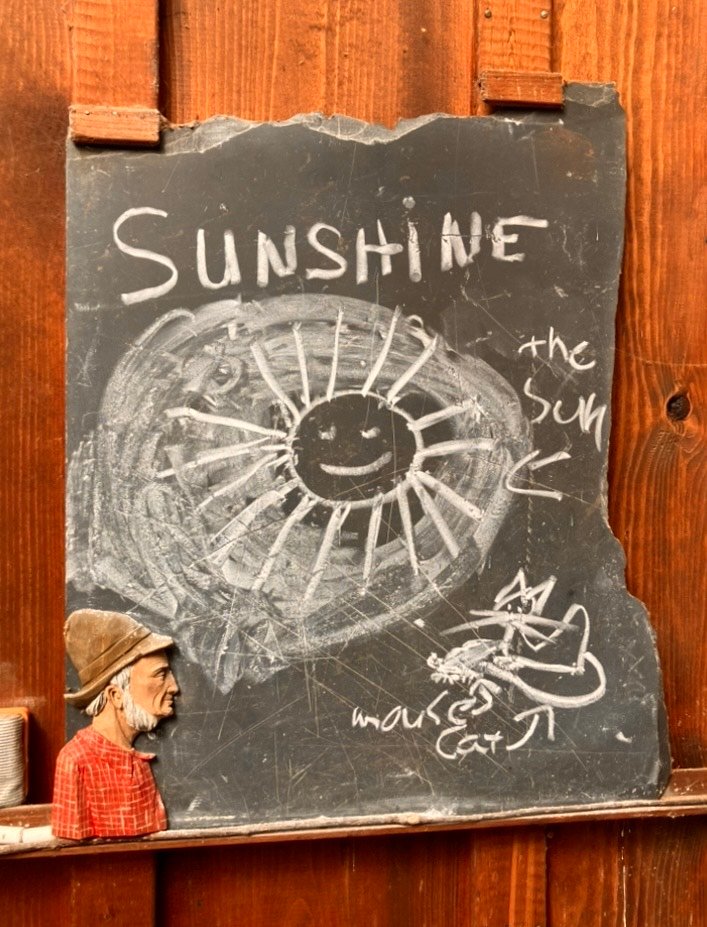 SUNSHiNE
the
Sun
mouses
cat